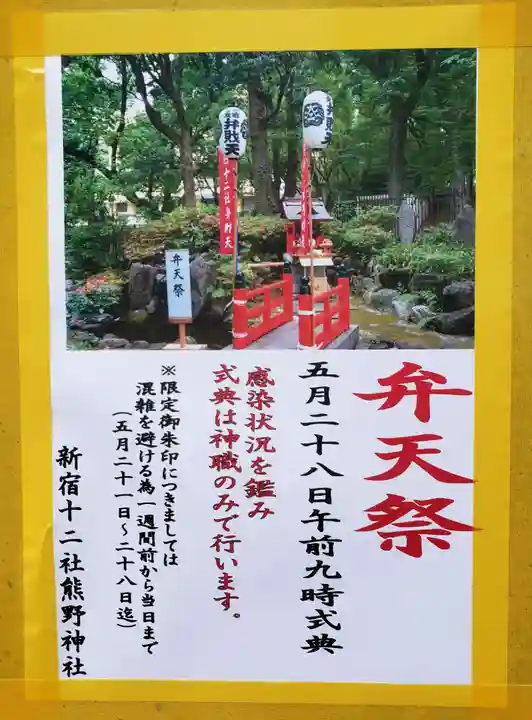 弁天祭
弁天祭
五月二十八日午前九時式典
感染状況を鑑み
式典は神職のみで行います。
※限定御朱印につきましては
混雑を避ける為一週間前から当日まで
(五月二十一日~二十八日迄)
新宿十二社熊野神社